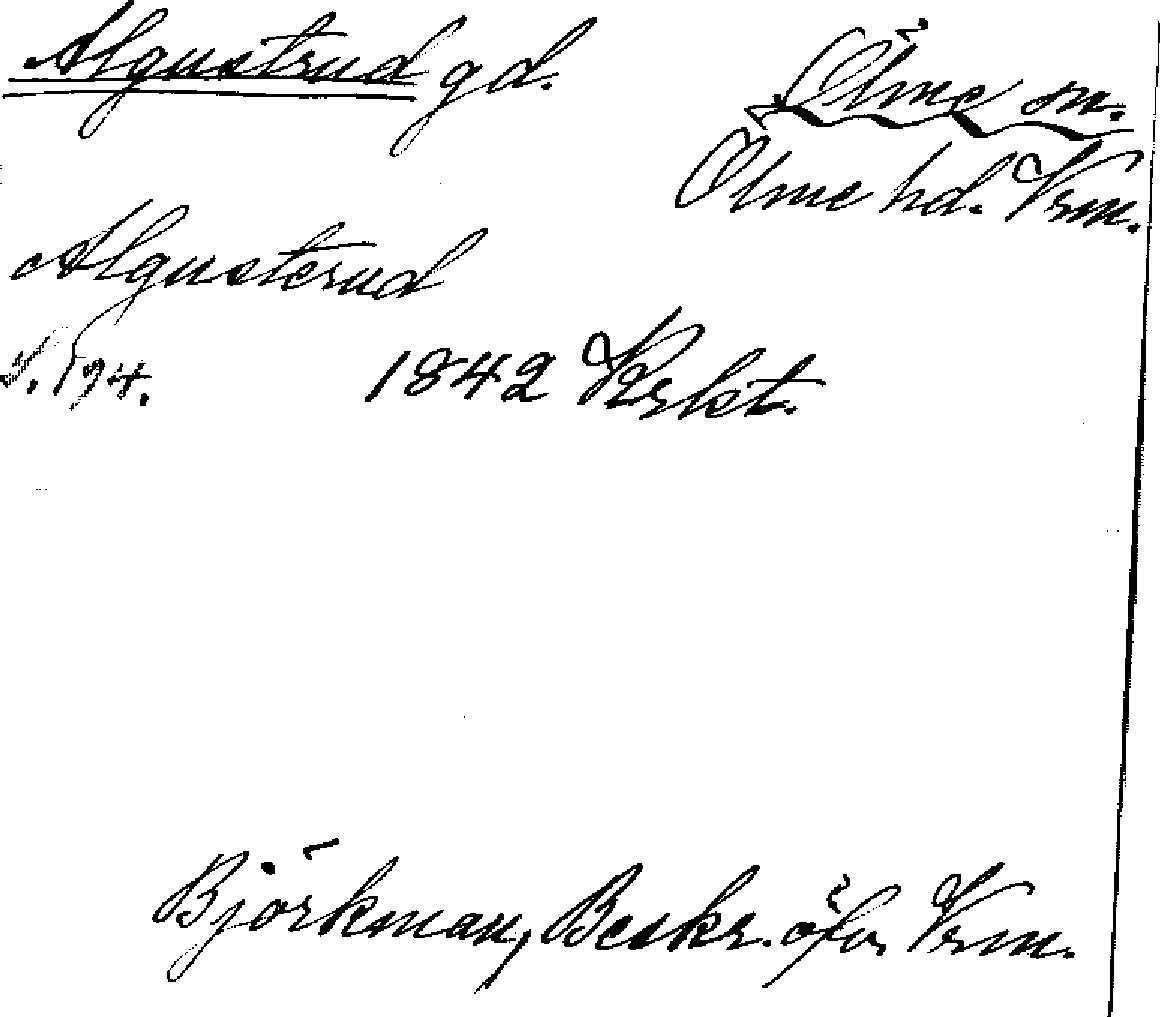 Algustrud gd.
Ölme sn.
Ölme hd. Vrm.
Algusterud
S. 194. 1842 Krlst.
Björkman, Beskr. öfver Vrm.